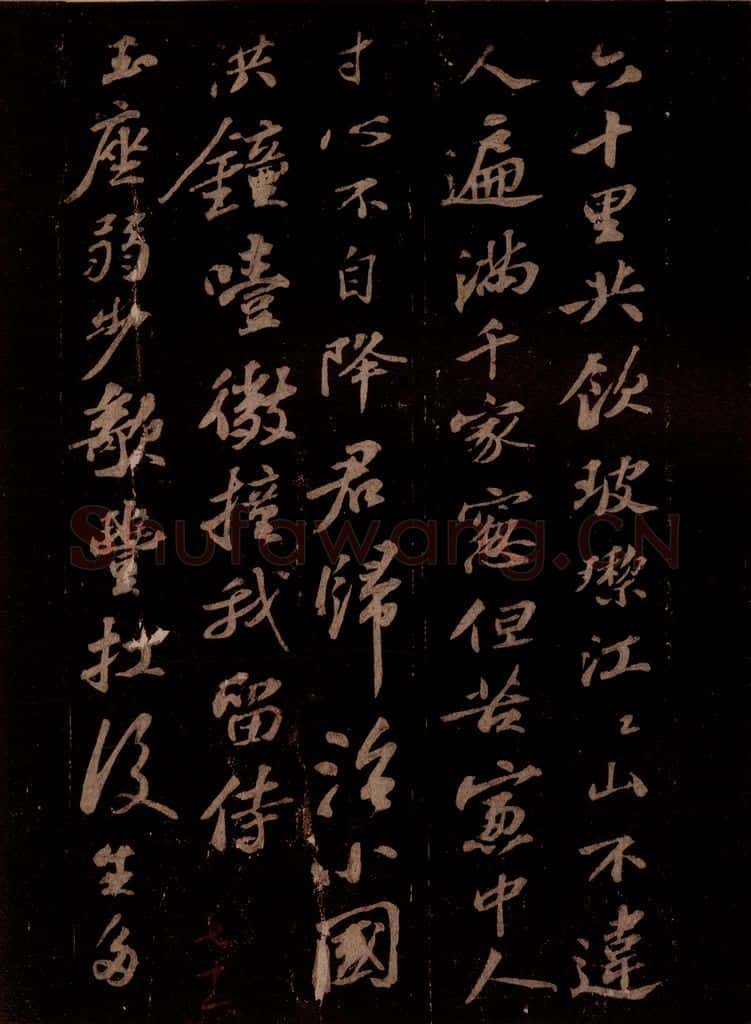 六十里共飲玻瓈江〻山不違
人遍滿千家窻但苦窻中人
寸心不自降君歸治小國
洪鐘噎微撞我留侍
玉座弱步欹豐扛後生多
Shufawang.CN